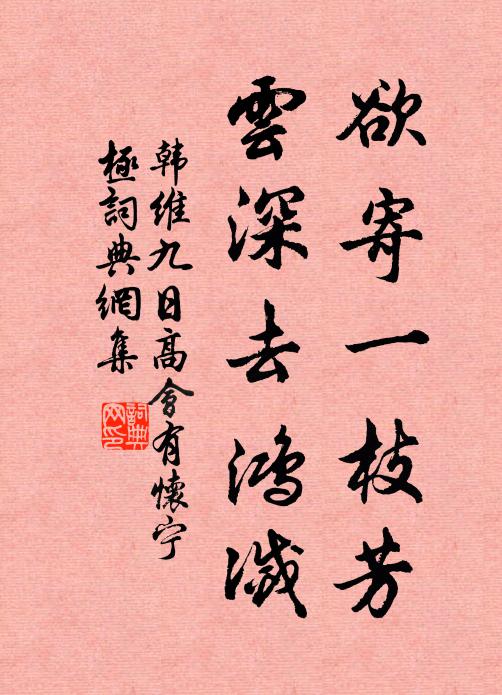 欲寄一枝芳
雲深去鴻滅
韩维九日高會有懷宁
極詞典網集
詞典网印